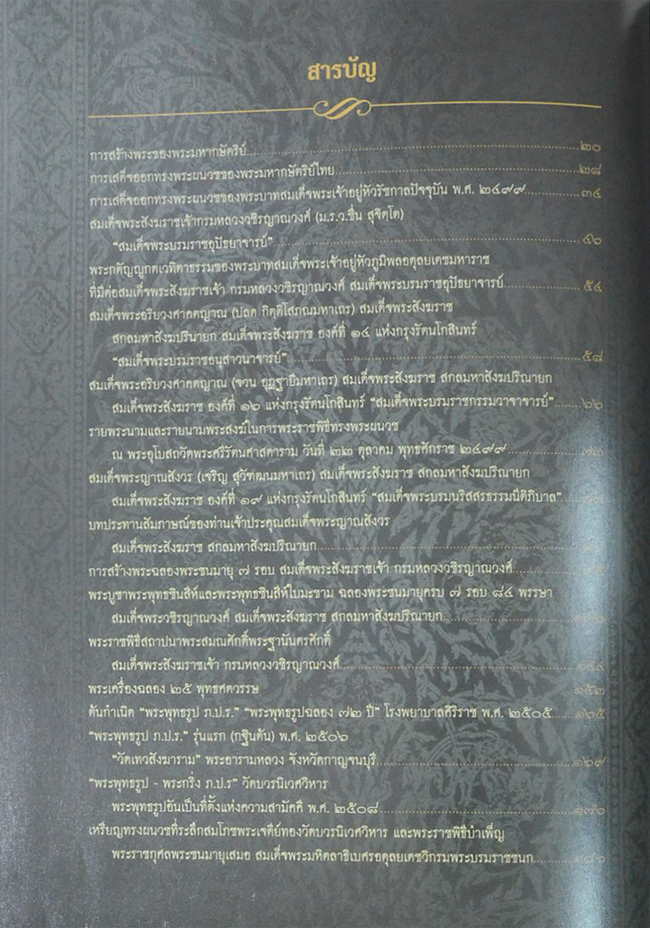 สารบัญ
การสร้างพระของพระมหากษัตริย์ ๒๐
การเสด็จออกทรงพระผนวชของพระมหากษัตริย์ไทย ๒๘
การเสด็จออกทรงพระผนวชของพระบาทสมเด็จพระเจ้าอยู่หัวรัชกาลปัจจุบัน พ.ศ. ๒๔๙๙ ๓๔
สมเด็จพระสังฆราชเจ้ากรมหลวงวชิรญาณวงศ์ (ม.ร.ว.ชื่น สุจิตฺโต)
“สมเด็จพระบรมราชอุปัธยาจารย์”
พระกตัญญูกตเวทิตาธรรมของพระบาทสมเด็จพระเจ้าอยู่หัวภูมิพลอดุลยเดชมหาราช
ที่มีต่อสมเด็จพระสังฆราชเจ้า กรมหลวงวชิรญาณวงศ์ สมเด็จพระบรมราชอุปัธยาจารย์ ๕๔
สมเด็จพระอริยวงศาคตญาณ (ปลด กิตฺติโสภณมหาเถร) สมเด็จพระสังฆราช
สกลมหาสังฆปรินายก สมเด็จพระสังฆราช องค์ที่ ๑๔ แห่งกรุงรัตนโกสินทร์
“สมเด็จพระบรมราชอนุสาวนาจารย์” ๕๘
สมเด็จพระอริยวงศาคตญาณ (จวน อุฏฺฐายีมหาเถร) สมเด็จพระสังฆราช สกลมหาสังฆปริณายก
สมเด็จพระสังฆราช องค์ที่ ๑๖ แห่งกรุงรัตนโกสินทร์ “สมเด็จพระบรมราชกรรมวาจาจารย์” ๖๖
รายพระนามและรายนามพระสงฆ์ในการพระราชพิธีทรงพระผนวช
ณ พระอุโบสถวัดพระศรีรัตนศาสดาราม วันที่ ๒๒ ตุลาคม พุทธศักราช ๒๔๙๙
สมเด็จพระญาณสังวร (เจริญ สุวัฑฒนมหาเถร) สมเด็จพระสังฆราช สกลมหาสังฆปริณายก
สมเด็จพระสังฆราช องค์ที่ ๑๙ แห่งกรุงรัตนโกสินทร์ “สมเด็จพระบรมนริสสรธรรมนีติภิบาล”
บทประทานสัมภาษณ์ของท่านเจ้าประคุณสมเด็จพระญาณสังวร
สมเด็จพระสังฆราช สกลมหาสังฆปริณายก
การสร้างพระฉลองพระชนมายุ ๗ รอบ สมเด็จพระสังฆราชเจ้า กรมหลวงวชิรญาณวงศ์
พระบูชาพระพุทธชินสีห์และพระพุทธชินสีห์ใบมะขาม ฉลองพระชนมายุครบ ๗ รอบ ๘๔ พรรษา
สมเด็จพระวชิรญาณวงศ์ สมเด็จพระสังฆราช สกลมหาสังฆปริณายก
พระราชพิธีสถาปนาพระสมณศักดิ์พระฐานันดรศักดิ์
สมเด็จพระสังฆราชเจ้า กรมหลวงวชิรญาณวงศ์
พระเครื่องฉลอง ๒๕ พุทธศตวรรษ ๑๕๒
ต้นกำเนิด “พระพุทธรูป ภ.ป.ร.” “พระพุทธรูปฉลอง ๗๒ ปี” โรงพยาบาลศิริราช พ.ศ. ๒๕๐๕ ๑๖๕
“พระพุทธรูป ภ.ป.ร.” รุ่นแรก (กฐินต้น) พ.ศ. ๒๕๐๖
“วัดเทวสังฆาราม” พระอารามหลวง จังหวัดกาญจนบุรี ๑๖๙
“พระพุทธรูป - พระกริ่ง ภ.ป.ร” วัดบวรนิเวศวิหาร
พระพุทธรูปอันเป็นที่ตั้งแห่งความสามัคคี พ.ศ. ๒๕๐๘ ๑๗๐
เหรียญทรงผนวชที่ระลึกสมโภชพระเจดีย์ทองวัดบวรนิเวศวิหาร และพระราชพิธีบำเพ็ญ
พระราชกุศลพระชนมายุเสมอ สมเด็จพระมหิตลาธิเบศรอดุลยเดชวิกรมพระบรมราชชนก